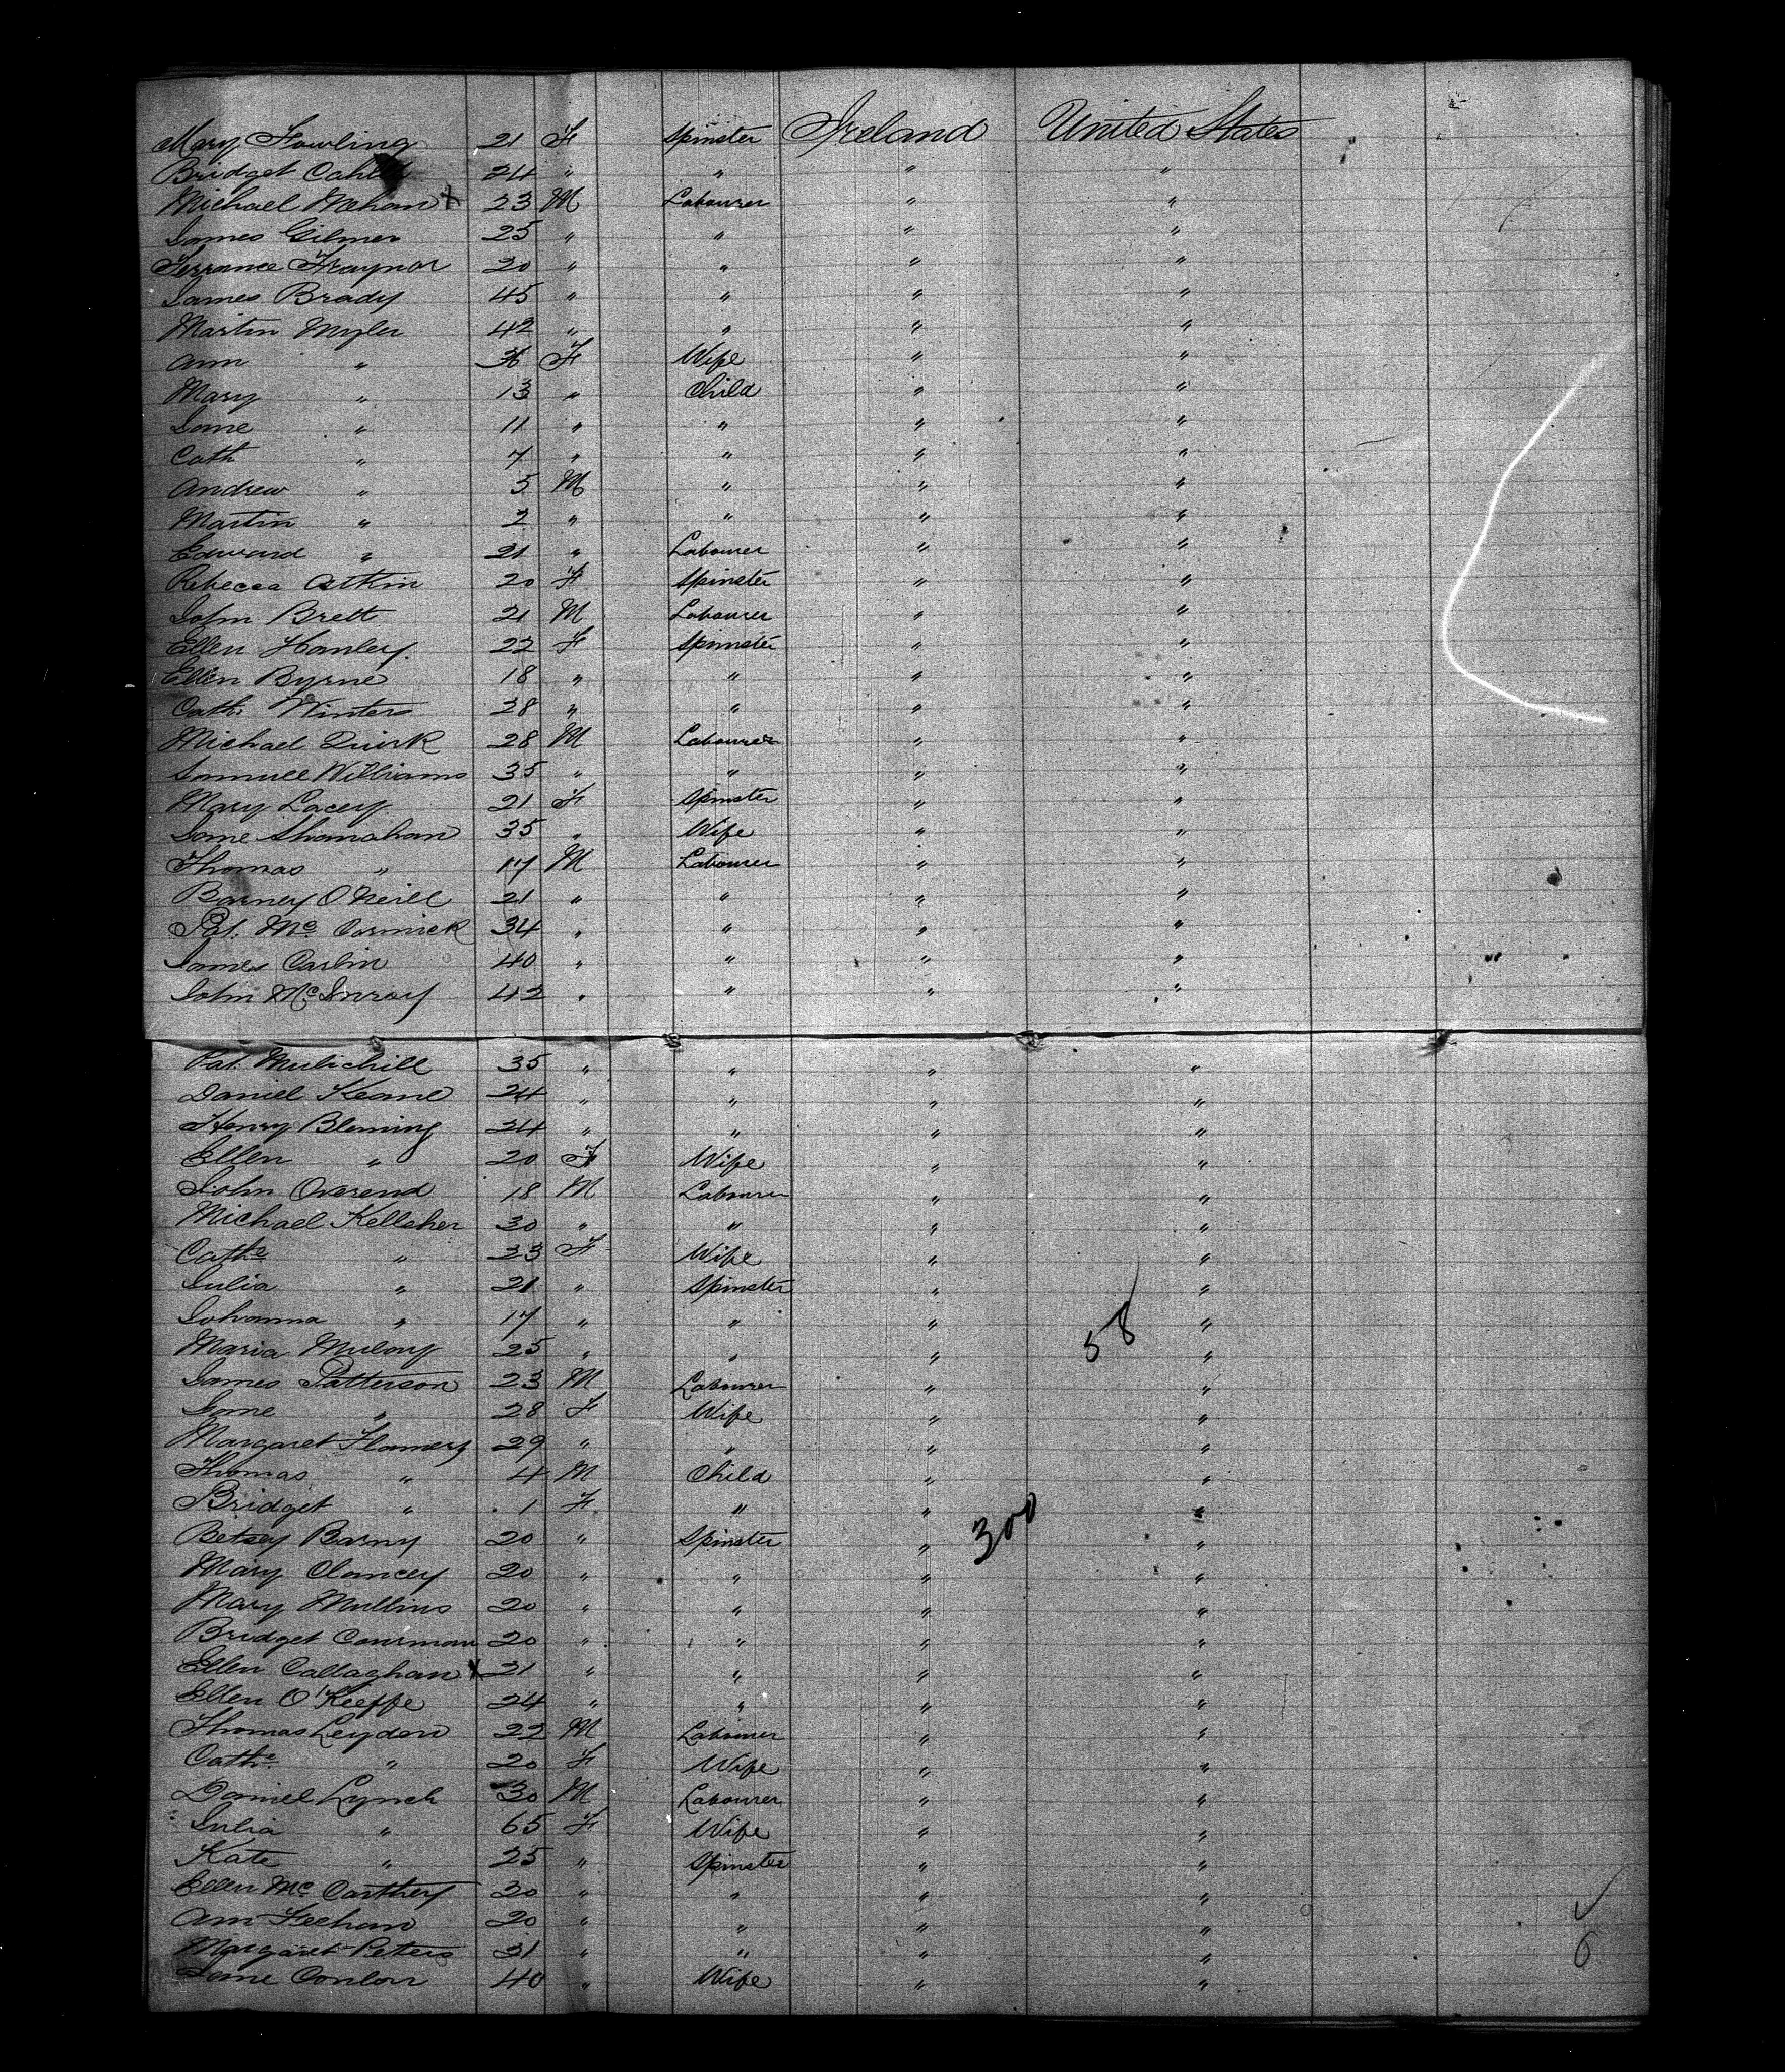 Mary Fowling 21 F Spinster Ireland United States
Bridget Cahill 24 " " " "
Michael Mehan x 23 M Labourer " "
James Gilmer 25 " " " "
Terrance Traynor 20 " " " "
James Brady 45 " " " "
Martin Myler 42 " " " "
Ann " 36 F Wife " "
Mary " 13 " Child " "
Jane " 11 " " " "
Cath " 7 " " " "
Andrew " 5 M " " "
Martin " 2 " " " "
Edward " 21 " Labourer " "
Rebecca Atkin 20 F Spinster " "
John Brett 21 M Labourer " "
Ellen Hanley 22 F Spinster " "
Ellen Byrne 18 " " " "
Cath. Winters 28 " " " "
Michael Quirk 28 M Labourer " "
Samuel Williams 35 " " " "
Mary Lacey 21 F Spinster " "
Jane Shanahan 35 " Wife " "
Thomas " 17 M Labourer " "
Barney O'Neill 21 " " " "
Pat. McCormick 34 " " " "
James Carlin 40 " " " "
John McInroy 42 " " " "
Pat. Mulichill 35 " " " "
Daniel Keane 24 " " " "
Henry Bleming 24 " " " "
Ellen " 20 F Wife " "
John Overend 18 M Labourer " "
Michael Kelleher 30 " " " "
Cathe " 23 F Wife " "
Julia " 21 " Spinster " "
Johanna " 17 " " " "
58
Maria Mulony 25 " " " "
James Patterson 23 M Labourer " "
Jane " 28 F Wife " "
Margaret Flamery 29 " " " "
Thomas " 4 M Child " "
Bridget " 1 F " " "
300
Betsey Barny 20 " Spinster " "
Mary Clancey 20 " " " "
Mary Mullins 20 " " " "
Bridget 20 " " " "
Ellen Callaghan x 21 " " " "
Ellen O'Keeffe 24 " " " "
Thomas Leyden 22 M Labourer " "
Cathe " 20 F Wife " "
Daniel Lynch 30 M Labourer " "
Julia " 65 F Wife " "
Kate " 25 " Spinster " "
Ellen McCarthey 30 " " " "
Ann Feehan 20 " " " "
Margaret Peters 31 " " " " 6
Jane Conlon 40 " Wife " "